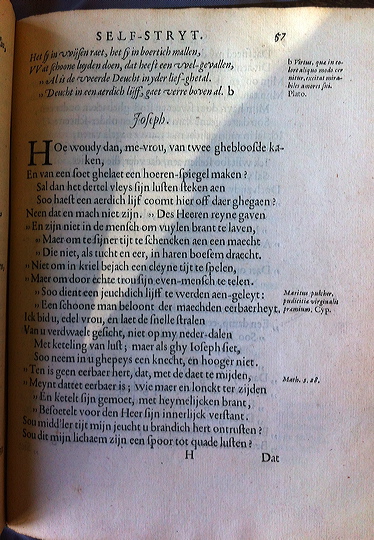 SELF-STRYT. 67
Het sy in wijsen raet, het sy in boertich mallen,
VVat schoone luyden doen, dat heeft een wel-gevallen,
„ Al is de weerde Deucht in yder lief-ghetal.
„ Deucht in een aerdich lijf, gaet verre boven al. b
b Virtus, qua in co-
lore aliquo modo cer-
nitur, excitat mira-
biles amores sui.
Plato.
Joseph.
HOe woudy dan, me-vrou, van twee ghebloosde ka-
ken,
En van een soet ghelaet een hoeren-spiegel maken ?
Sal dan het dertel vleys sijn lusten steken aen
Soo haest een aerdich lijf coomt hier off daer ghegaen ?
Neen dat en mach niet zijn. „ Des Heeren reyne gaven
„ En zijn niet in de mensch om vuylen brant te laven,
„ Maer om te sijner tijt te schencken aen een maecht
„ Die niet, als tucht en eer, in haren boesem draecht.
„ Niet om in kriel bejach een cleyne tijt te spelen,
„ Maer om door echte trou sijn even-mensch te telen.
„ Soo dient een jeuchdich lijf te werden aen-geleyt:
„ Een schoone man beloont der maechden eerbaerheyt.
Maritus pulcher,
pudicitia virginalis
praemium, Cyp.
Ick bid u, edel vrou, en laet de snelle stralen
Van u verdwaelt gesicht, niet op my neder-dalen
Met keteling van lust; maer als ghy Ioseph siet,
Soo neem in u ghepeys een knecht, en hooger niet.
„ Ten is geen eerbaer hert, dat, met de daet te mijden,
„ Meynt dattet eerbaer is; wie maer en lonckt ter zijden
Math. 5. 28.
„ En ketelt sijn gemoet, met heymelijcken brant,
„ Besoetelt voor den Heer sijn innerlijck verstant.
Sou midd'ler tijt mijn jeucht u brandich hert ontrusten ?
Sou dit mijn lichaem zijn een spoor tot quade lusten ?
H Dat